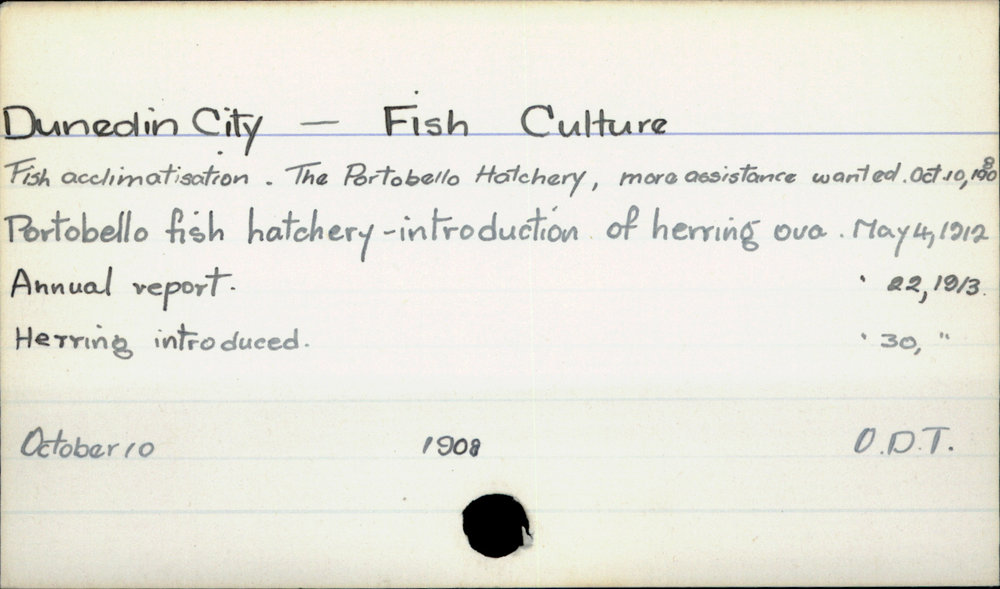 Dunedin City — Fish Culture
Fish acclimatisation. The Portobello Hatchery, more assistance wanted. Oct.10,1908
Portobello fish hatchery-introduction of herring ova. May 4,1912
Annual report. " 22,1913.
Herring introduced. " 30, "
October 10 1908 O.D.T.